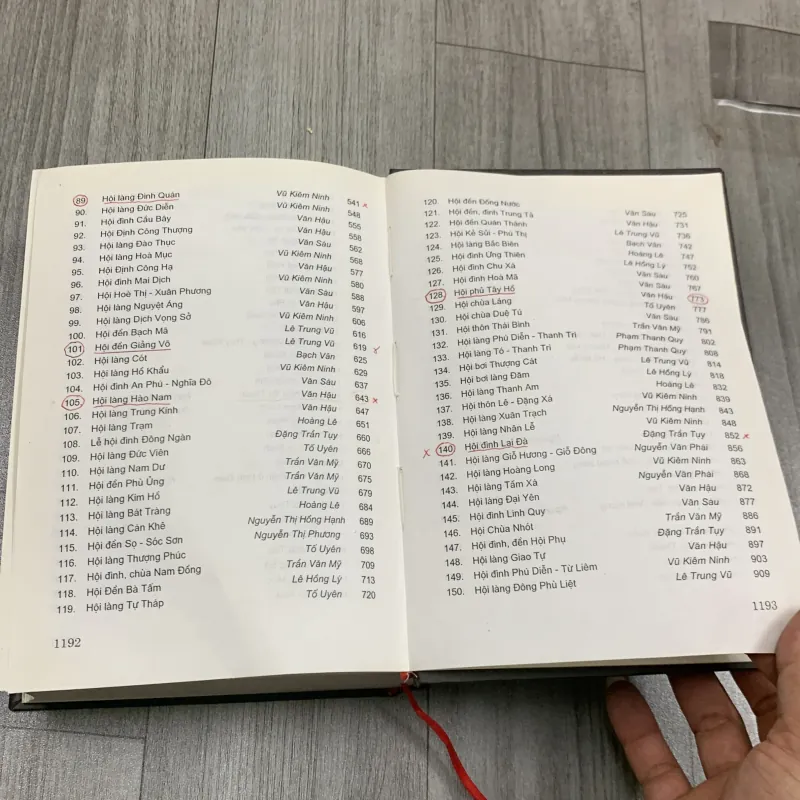 89. Hội làng Đình Quán Vũ Kiêm Ninh 541
90. Hội làng Đức Diễn Vũ Kiêm Ninh 548
91. Hội đình Cầu Bây Văn Hậu 555
92. Hội Định Công Thượng Văn Hậu 558
93. Hội làng Đào Thục Văn Sáu 562
94. Hội làng Hoà Mục Vũ Kiêm Ninh 568
95. Hội Định Công Hạ Văn Hậu 577
96. Hội đình Mai Dịch Vũ Kiêm Ninh 580
97. Hội Hoè Thị - Xuân Phương Văn Sáu 588
98. Hội làng Nguyệt Áng Văn Hậu 597
99. Hội làng Dịch Vọng Sở Vũ Kiêm Ninh 606
100. Hội đền Bạch Mã Lê Trung Vũ 616
101. Hội đền Giảng Võ Lê Trung Vũ 619
102. Hội làng Cót Bạch Vân 625
103. Hội làng Hồ Khẩu Vũ Kiêm Ninh 629
104. Hội đình An Phú - Nghĩa Đô Văn Sáu 637
105. Hội làng Hào Nam Văn Hậu 643
106. Hội làng Trung Kính Văn Hậu 647
107. Hội làng Trạm Hoàng Lê 651
108. Lễ hội đình Đông Ngàn Đặng Trần Tụy 660
109. Hội làng Đức Viên Tố Uyên 666
110. Hội làng Nam Dư Trần Văn Mỹ 670
111. Hội đền Phù Ủng Trần Văn Mỹ 675
112. Hội làng Kim Hồ Lê Trung Vũ 679
113. Hội làng Bát Tràng Hoàng Lê 684
114. Hội làng Cán Khê Nguyễn Thị Hồng Hạnh 689
115. Hội đền Sọ - Sóc Sơn Nguyễn Thị Phương 693
116. Hội làng Thượng Phúc Tố Uyên 698
117. Hội đình, chùa Nam Đồng Trần Văn Mỹ 709
118. Hội Đền Bà Tấm Lê Hồng Lý 713
119. Hội làng Tự Tháp Tố Uyên 720
1192
120. Hội đền Đồng Nước Văn Sáu 725
121. Hội đền, đình Trung Tả Văn Hậu 731
122. Hội đền Quán Thánh Lê Trung Vũ 736
123. Hội Kẻ Sủi - Phú Thị Bạch Vân 742
124. Hội làng Bắc Biên Hoàng Lê 747
125. Hội đình Ứng Thiên Lê Hồng Lý 752
126. Hội đình Chu Xá Văn Sáu 760
127. Hội đình Hoà Mã Văn Sáu 767
128. Hội phủ Tây Hồ Văn Hậu 773
129. Hội chùa Láng Tố Uyên 777
130. Hội chùa Duệ Tú Văn Sáu 786
131. Hội thôn Thái Bình Trần Văn Mỹ 791
132. Hội làng Phú Diễn - Thanh Trì Phạm Thanh Quy 802
133. Hội làng Tó - Thanh Trì Phạm Thanh Quy 808
134. Hội bơi Thượng Cát Lê Trung Vũ 814
135. Hội bơi làng Đăm Lê Hồng Lý 818
136. Hội làng Thanh Am Hoàng Lê 832
137. Hội thôn Lê - Đặng Xá Vũ Kiêm Ninh 839
138. Hội làng Xuân Trạch Nguyễn Thị Hồng Hạnh 843
139. Hội làng Nhân Lễ Vũ Kiêm Ninh 848
140. Hội đình Lại Đà Đặng Trần Tụy 852
141. Hội làng Giỗ Hương - Giỗ Đông Nguyễn Văn Phái 856
142. Hội làng Hoàng Long Vũ Kiêm Ninh 863
143. Hội làng Tầm Xá Nguyễn Văn Phái 868
144. Hội làng Đại Yên Văn Hậu 872
145. Hội đình Linh Quy Văn Sáu 877
146. Hội Chùa Nhót Trần Văn Mỹ 886
147. Hội đình, đền Hội Phụ Đặng Trần Tụy 891
148. Hội làng Giao Tự Văn Hậu 897
149. Hội đình Phú Diễn - Từ Liêm Vũ Kiêm Ninh 903
150. Hội làng Đông Phù Liệt Lê Trung Vũ 909
1193